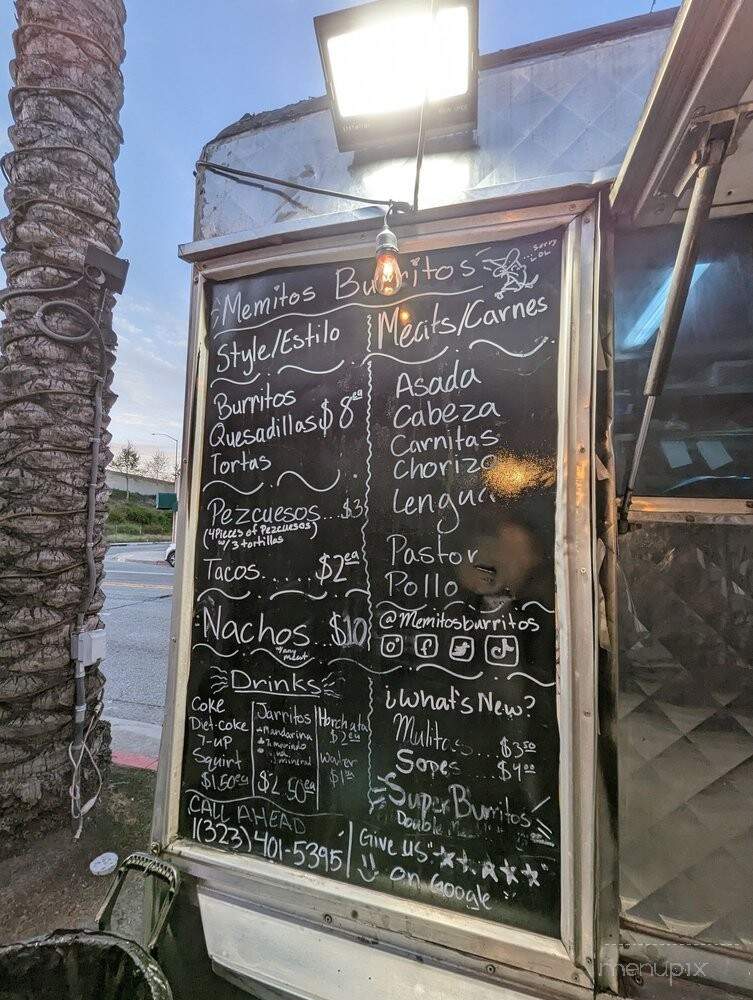 Memitos Burritos
...Sorry
LOL
Style/Estilo
Burritos
Quesadillas $8ea
Tortas
Pezcuesos...$3
(4 Pieces of Pezcuesos)
w/ 3 tortillas
Tacos.....$2ea
Nachos...$10
w/any meat
Drinks
Coke
Diet-coke
7-up
Squirt
$1.50ea
Jarritos
Mandarina
Tamarindo
mineral
$2.50ea
Horchata
$2ea
Water
$1
CALL AHEAD
1(323)401-5395
Meats/Carnes
Asada
Cabeza
Carnitas
Chorizo
Lengua
Pastor
Pollo
@Memitosburritos
¡What's New?
Mulitas...$3.50
Sopes...$4.00
Super Burritos
Double
Give us "★★★★★"
on Google
menupix